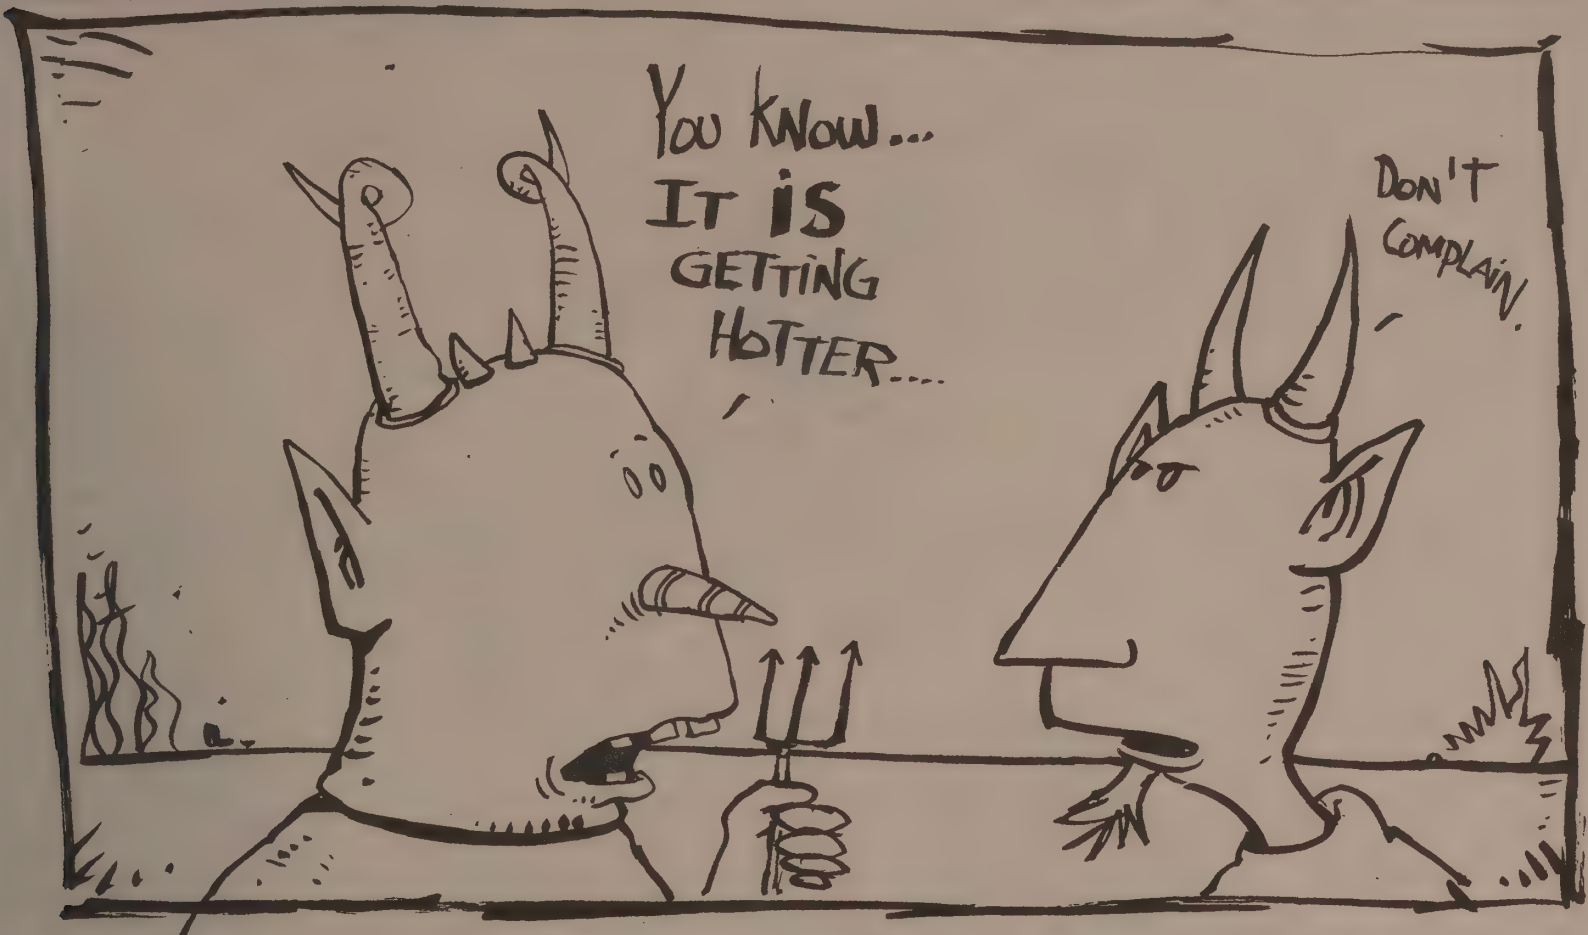 You KNOW...
IT iS
GETTiNG
HOTTER.....
DON'T
COMPLAiN.